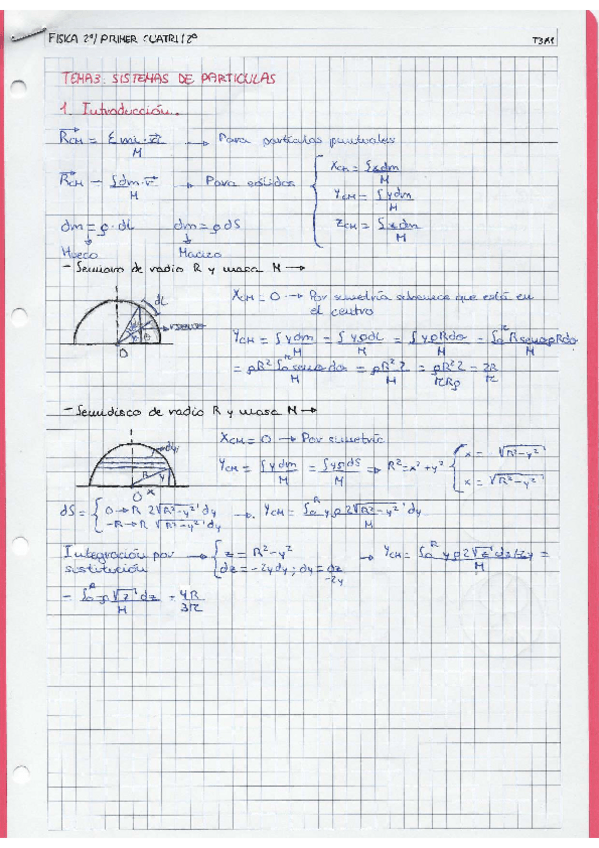 FISICA 2º/ PRIMER CUATRI 2º T3A1
TEMA3: SISTEMAS DE PARTICULAS
1. Introducción.
R⃗CM = Σmi·r⃗i / M → Para partículas puntuales
R⃗CM = ∫dm·r⃗ / M → Para sólidos { XCM = ∫xdm / M
YCM = ∫ydm / M
ZCM = ∫zdm / M
dm = ρ·dL dm = ρdS
Hueco Macizo
- Semiaro de radio R y masa M →
dL
XCM = 0 → Por simetría sabemos que está en
el centro
YCM = ∫ydm / M = ∫yρdL / M = ∫yρRdα / M = ∫Rsenαρ Rdα / M
= ρR² ∫senαdα / M = ρR²2 / M = ρR²2 / πRρ = 2R / π
O
- Semidisco de radio R y masa M →
dy
XCM = 0 → Por simetría
YCM = ∫ydm / M = ∫yρdS / M ⇒ R² = x² + y² { x = -√R²-y²
x = √R²-y²
R y
O x
dS = { 0→R 2√R²-y² dy
-R→R √R²-y² dy
→ YCM = ∫₀ᴿ yρ2√R²-y² dy / M
Integración por sustitución → { z = R²-y²
dz = -2ydy ; dy = dz / -2y
→ YCM = ∫₀ᴿ yρ2√z dz/-2y / M =
= ∫₀ᴿ -ρ√z dz / M = 4R / 3π